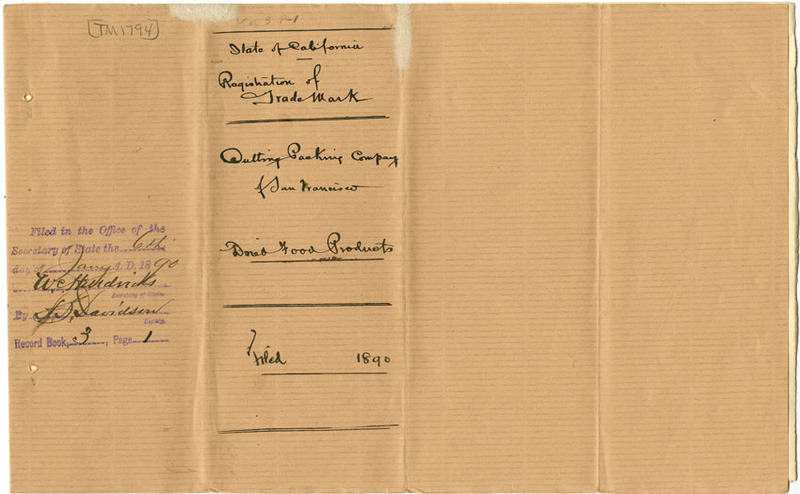 [TM1794]
Vol 3 P-1
State of California
Registration of
Trade Mark
Cutting Packing Company
of San Francisco
Dried Food Products
Filed 1890
Filed in the Office of the
Secretary of State the 6th
day of Jany A. D. 1890
W. C. Hendricks
Secretary of State
By Davidson
Deputy
Record Book, 3, Page 1